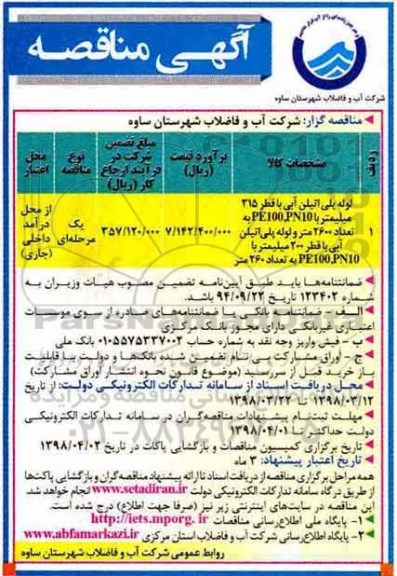 آگهی مناقصه
شرکت آب و فاضلاب شهرستان ساوه
مناقصه گزار: شرکت آب و فاضلاب شهرستان ساوه
ردیف
مشخصات کالا
برآورد قیمت (ریال)
مبلغ تضمین شرکت در فرآیند ارجاع کار (ریال)
نوع مناقصه
محل اعتبار
۱
لوله پلی اتیلن آبی با قطر ۳۱۵
میلیمتر با PE100,PN10 به
تعداد ۲۶۰۰ متر و لوله پلی اتیلن
آبی با قطر ۲۰۰ میلیمتر با
PE100,PN10 به تعداد ۲۶۰ متر
۷/۱۴۲/۴۰۰/۰۰۰
۳۵۷/۱۲۰/۰۰۰
یک مرحله‌ای
از محل درآمد داخلی (جاری)
ضمانتنامه‌ها باید طبق آیین‌نامه تضمین مصوب هیات وزیران به
شماره ۱۲۳۴۰۲ تاریخ ۹۴/۰۹/۲۲ باشد.
الف - ضمانتنامه بانکی یا ضمانتنامه‌های صادره از سوی موسسات
اعتباری غیربانکی دارای مجوز بانک مرکزی
ب - فیش واریز وجه نقد به شماره حساب ۰۱۰۵۵۷۵۳۳۷۰۰۲ بانک ملی
ج - اوراق مشارکت بی نام تضمین شده بانکها و دولت با قابلیت
باز خرید قبل از سررسید (موضوع قانون نحوه انتشار اوراق مشارکت)
محل دریافت اسناد از سامانه تدارکات الکترونیکی دولت: از تاریخ
۱۳۹۸/۰۳/۱۲ تا ۱۳۹۸/۰۳/۲۲
مهلت ثبت‌نام پیشنهادات مناقصه‌گران در سامانه تدارکات الکترونیکی
دولت حداکثر تا ۱۳۹۸/۰۴/۰۱
تاریخ برگزاری کمیسیون مناقصات و بازگشایی پاکات در تاریخ ۱۳۹۸/۰۴/۰۲
تاریخ اعتبار پیشنهاد: ۳ ماه
همه مراحل برگزاری مناقصه از دریافت اسناد تا ارائه پیشنهاد مناقصه‌گران و بازگشایی پاکت‌ها
از طریق درگاه سامانه تدارکات الکترونیکی دولت www.setadiran.ir انجام خواهد شد.
این مناقصه در سایت‌های اینترنتی زیر نیز (صرفا جهت اطلاع) درج شده است.
۱- پایگاه ملی اطلاع‌رسانی مناقصات http://iets.mporg.ir
۲- پایگاه اطلاع‌رسانی شرکت آب و فاضلاب استان مرکزی www.abfamarkazi.ir
روابط عمومی شرکت آب و فاضلاب شهرستان ساوه